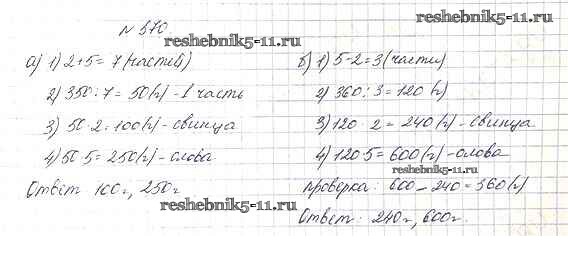 № 570
reshebnik5-11.ru
reshebnik5-11.ru
а) 1) 2+5= 7 (частей)
2) 350:7= 50(г) - 1 часть
3) 50·2=100(г) - свинца
4) 50·5= 250(г) - олова
Ответ 100г, 250г
reshebnik5-11.ru
б) 1) 5-2=3(части)
2) 360:3=120(г)
3) 120·2=240(г) - свинца
4) 120·5=600(г) - олова
reshebnik5-11.ru
Проверка: 600-240=360(г)
Ответ: 240г, 600г.